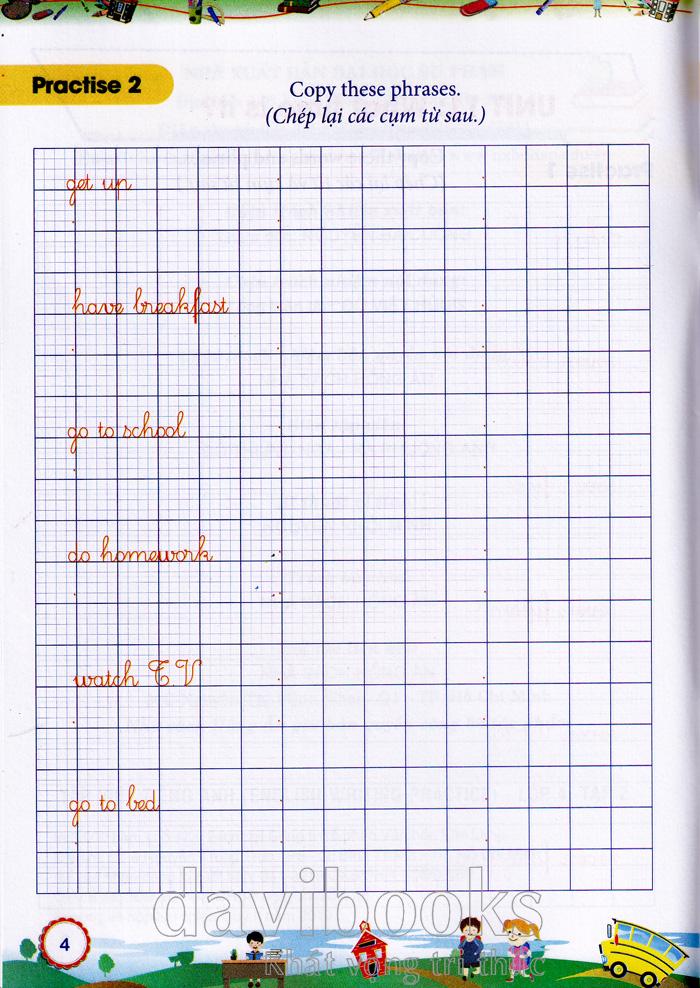 Practise 2
Copy these phrases.
(Chép lại các cụm từ sau.)
get up
have breakfast
go to school
do homework
watch TV
go to bed
davibooks
Khát vọng tri thức
4